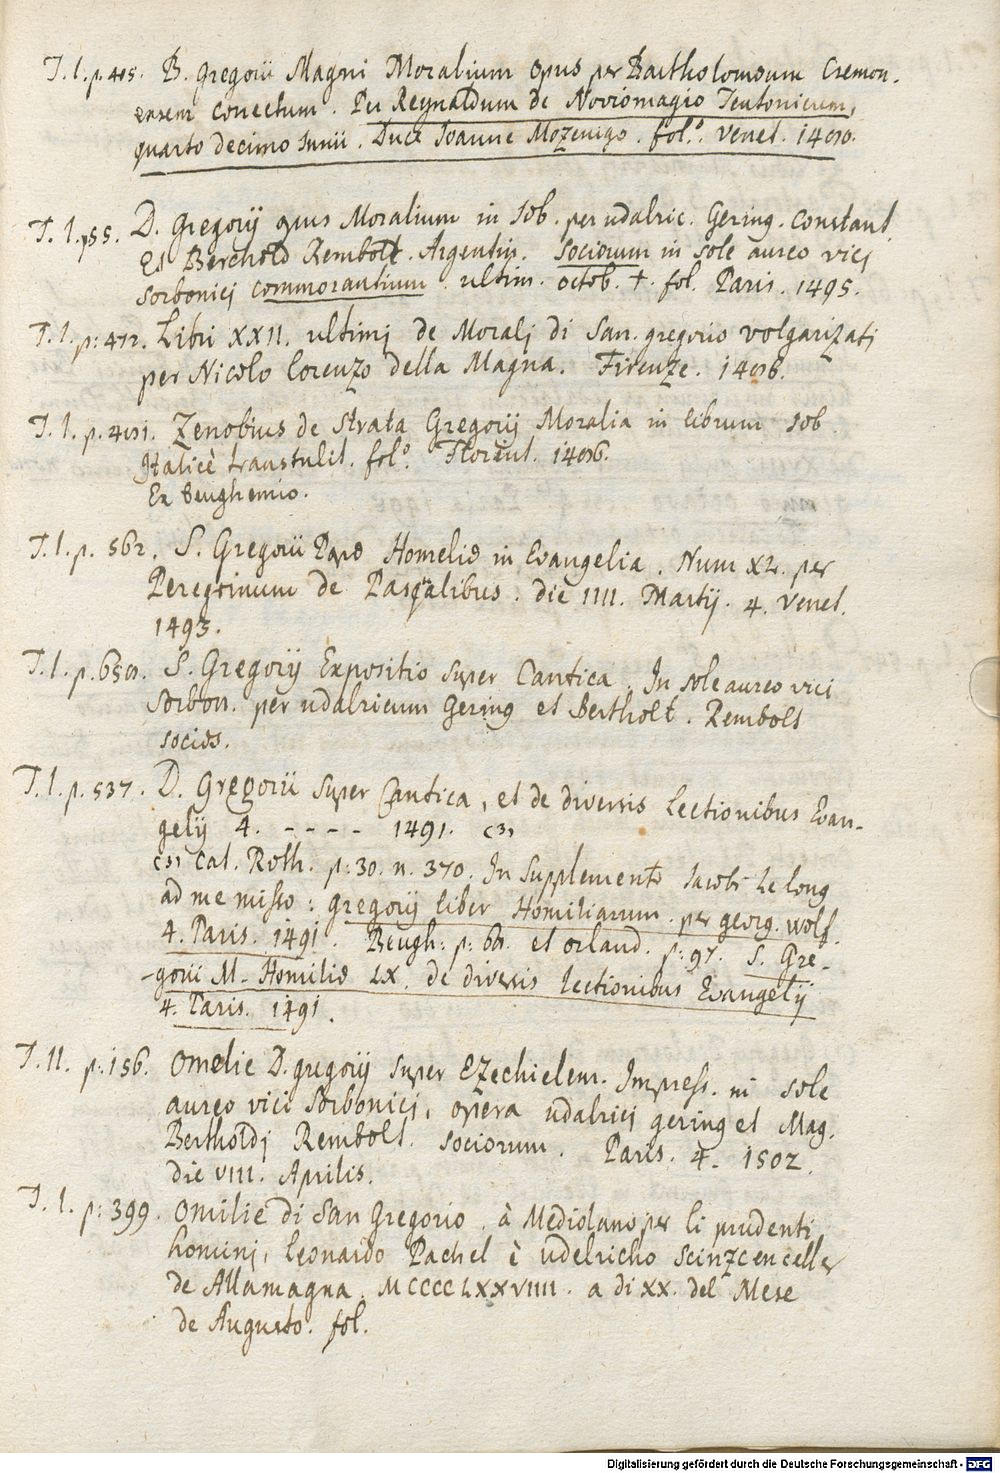 T.I. p. 415. B. Gregorii Magni Moralium opus per Bartholomeum Cremon.
ensem correctum. Per Reynaldum de Noviomagio Teutonicum,
quarto decimo Junii. Duce Joanne Mozenigo. fol.° Venet. 1480.
T. I. p. 55. D. Gregorij opus Moralium in Iob. per udalric. Gering. Constant.
Et Berchold Rembolt. Argentin. Sociorum in sole aureo vici
Sorbonicj commorantium. ultim. octob. †. fol. Paris. 1495.
T. I. p: 472. Libri XXII. ultimj de Moralj di San. gregorio volgarizati
per Nicolo Lorenzo della Magna. Firenze. 1486.
T. I. p. 481. Zenobius de Strata Gregorij Moralia in librum Iob
Italicè transtulit. fol.° Florent. 1486.
Ex Beughemio.
T. I. p. 562. S. Gregorii Papæ Homeliæ in Evangelia. Num XL. per
Peregrinum de Pasqalibus. die IIII. Martij. 4. Venet.
1493.
T. I. p. 658. S. Gregorij Expositio super Cantica. In sole aureo vici
Sorbon. per udalricum Gering et Bertholt. Rembolt
socios.
T. I. p. 537. D. Gregorii super Cantica, et de diversis Lectionibus Evan-
gelij 4. - - - - 1491. (3)
(3) Cat. Roth. p: 30. n. 370. In Supplemento Jacobi Le Long
ad me misso: Gregorij liber Homiliarum. per georg. Wolf.
4. Paris. 1491. Beugh: p: 68. et orland. p: 97. S. Gre-
-gorii M. Homiliæ LX. de diversis lectionibus Evangelij
4. Paris. 1491.
T. II. p: 156. Omelie D. gregorij super Ezechielem. Impress. in sole
aureo vici Sorbonicj, opera udalricj gering et Mag.
Bertholdj Rembolt. Sociorum. Paris. 4. 1502.
die VIII. Aprilis.
T. I. p: 399. Omilie di San Gregorio. à Mediolano per li prudenti
homini, Leonardo Pachel è udelricho Scinzcenceller
de Allamagna. MCCCCLXXVIIII. a di XX. del Mese
de Augusto. fol.
Digitalisierung gefördert durch die Deutsche Forschungsgemeinschaft - DFG